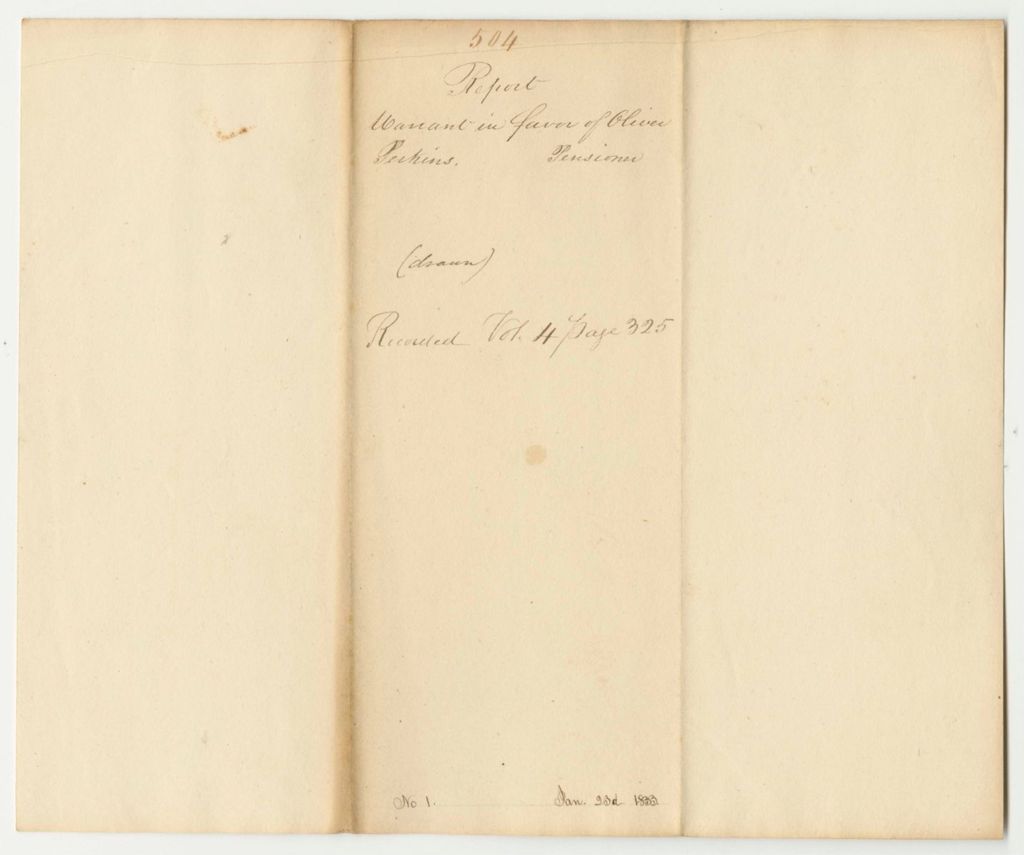 504
Report
Warrant in favor of Oliver
Perkins. Pensioner
(drawn)
Recorded Vol. 4 page 325
No 1. Jan. 23d